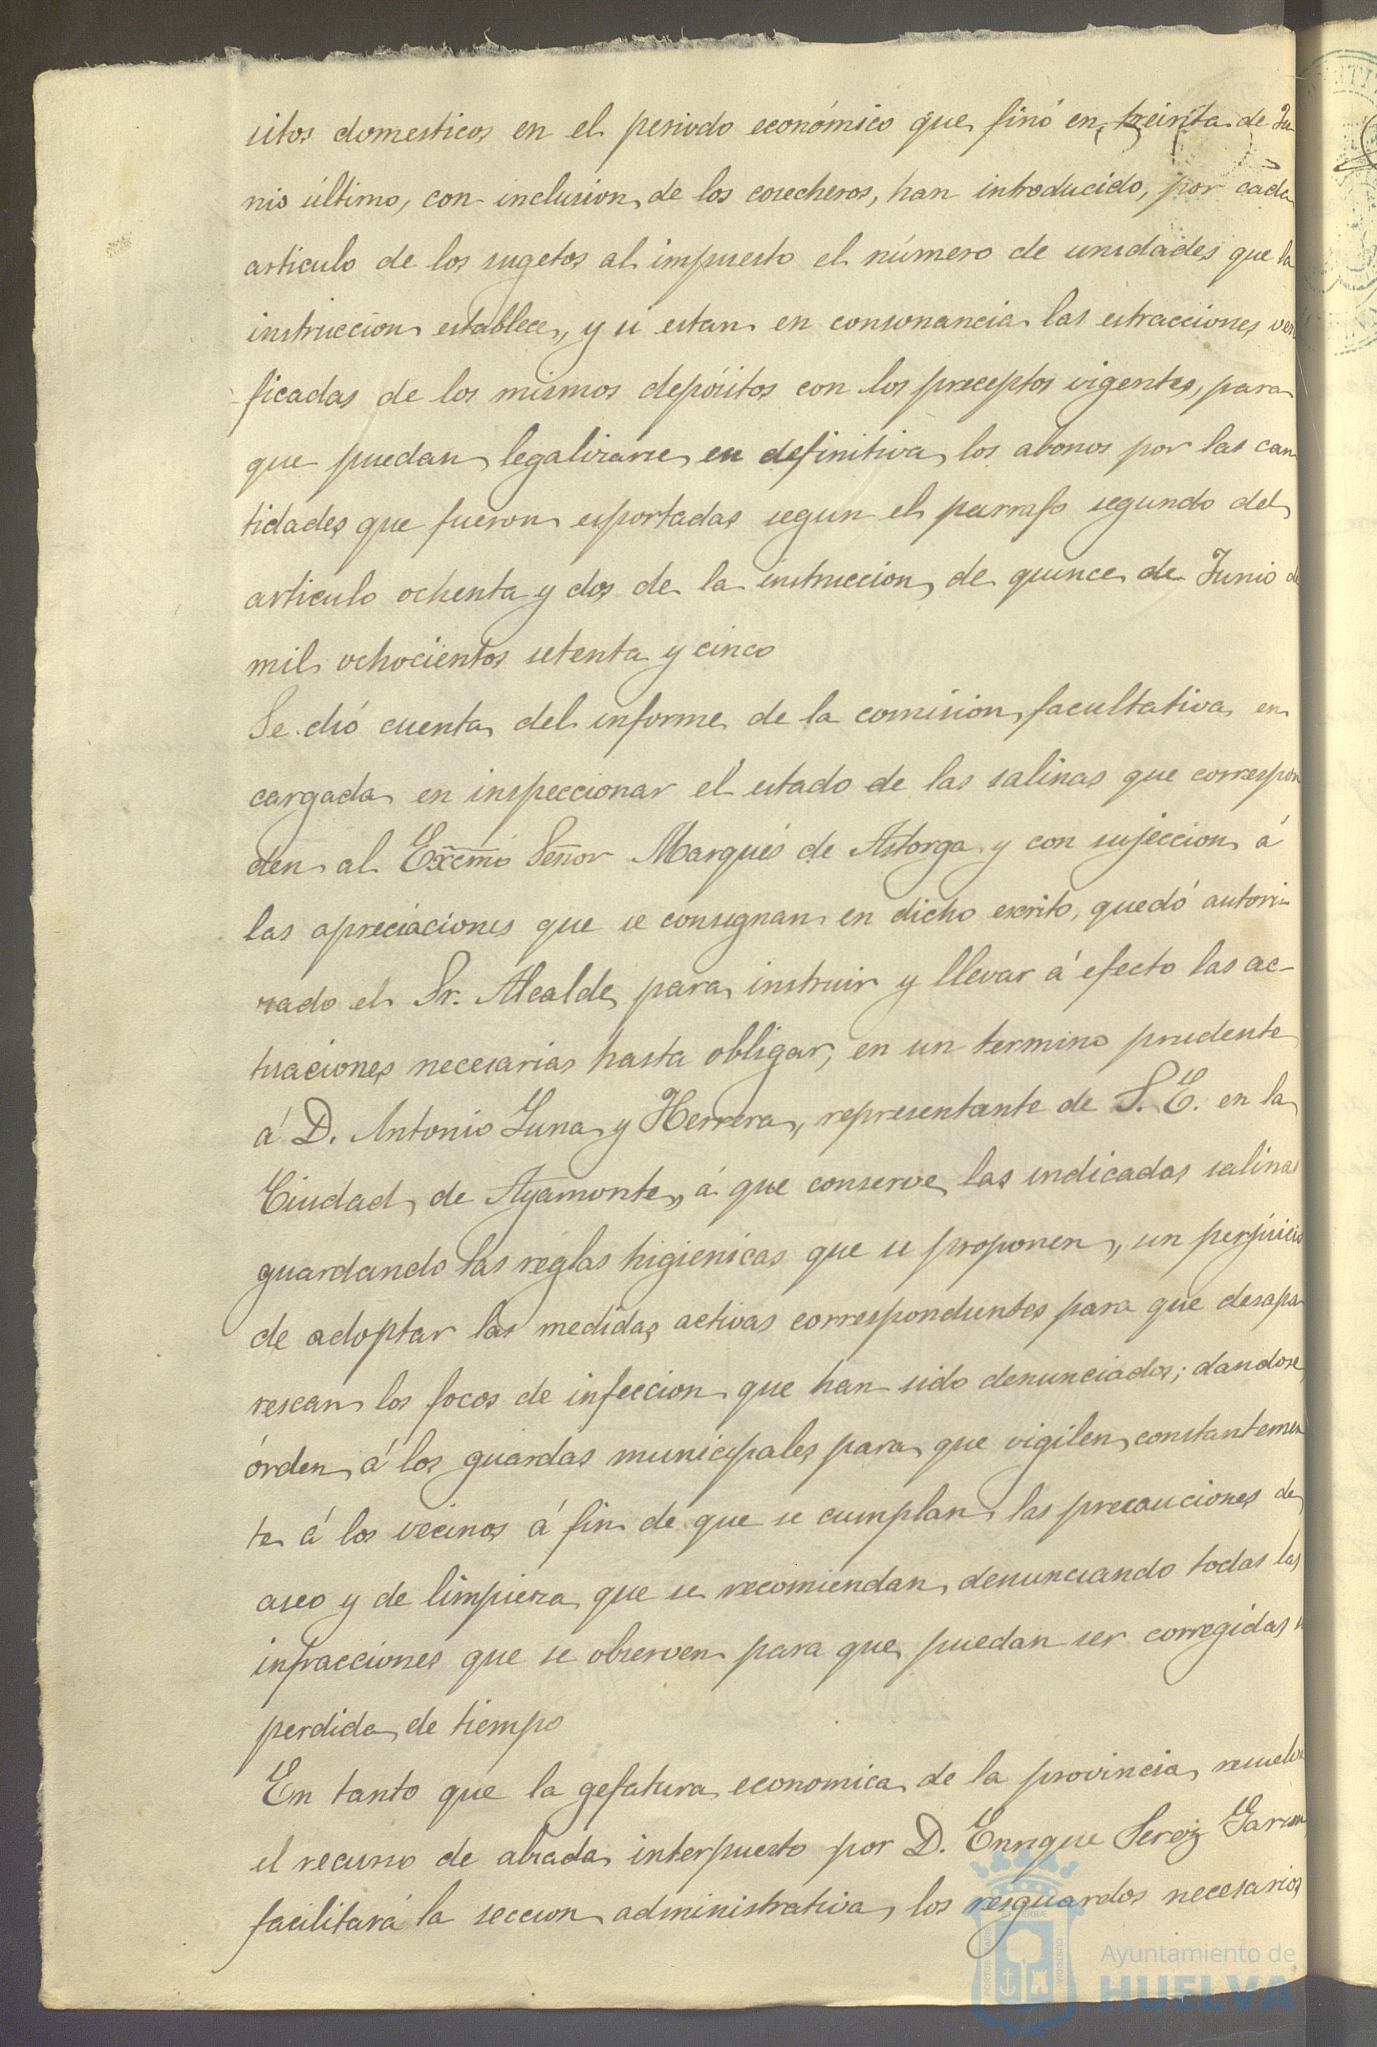 sitos domesticos en el periodo económico que finó en treinta de Ju
nio último, con inclusion de los cosecheros, han introducido, por cada
articulo de los sugetos al impuesto el número de unidades que la
instruccion establece, y si estan en consonancia las estracciones veri
ficadas de los mismos depósitos con los preceptos vigentes, para
que puedan legalizarse en definitiva los abonos por las can
tidades que fueron esportadas segun el parrafo segundo del
articulo ochenta y dos de la instruccion de quince de Junio de
mil ochocientos setenta y cinco
Se dió cuenta del informe de la comision facultativa en
cargada en inspeccionar el estado de las salinas que correspon
den al Excmo Señor Marqués de Astorga y con sujeccion á
las apreciaciones que se consignan en dicho escrito, quedó autori-
zado el Sr. Alcalde para instruir y llevar á efecto las ac-
tuaciones necesarias hasta obligar, en un termino prudente
á D. Antonio Luna y Herrera, representante de S. E. en la
Ciudad de Ayamonte, á que conserve las indicadas salinas
guardando las reglas higienicas que se proponen, sin perjuicio
de adoptar las medidas activas correspondientes para que desapa
rescan los focos de infeccion que han sido denunciados; dandose
órden á los guardas municipales para que vigilen constantemen
te á los vecinos á fin de que se cumplan las precauciones de
aseo y de limpieza que se recomiendan, denunciando todas las
infracciones que se observen para que puedan ser corregidas
perdida de tiempo
En tanto que la gefatura economica de la provincia resuelve
el recurso de alzada interpuesto por D. Enrique
facilitará la seccion administrativa, los resguardos necesarios
Ayuntamiento de
HUELVA